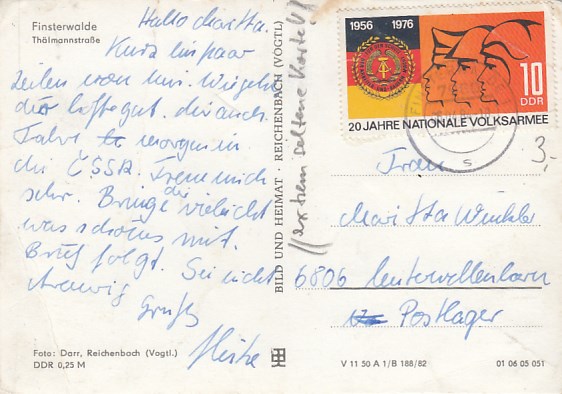 Finsterwalde
Thälmannstraße
Hallo Maritta.
Kurz ein paar
Zeilen von mir. Wie geht
dir hoffe gut. dir auch.
Fahre morgen in
die ČSSR. Freue mich
sehr. Bringe dir vielleicht
was schönes mit.
Brief folgt. Sei nicht
traurig
Grüße
Foto: Darr, Reichenbach (Vogtl.)
DDR 0,25 M
BILD UND HEIMAT · REICHENBACH (VOGTL)
!! extrem seltene Karte !!
1956 1976
10
DDR
20 JAHRE NATIONALE VOLKSARMEE
3,-
Frau
Maritta Winkler
6806 Unterwellenborn
Postlager
V 11 50 A 1/B 188/82
01 06 05 051